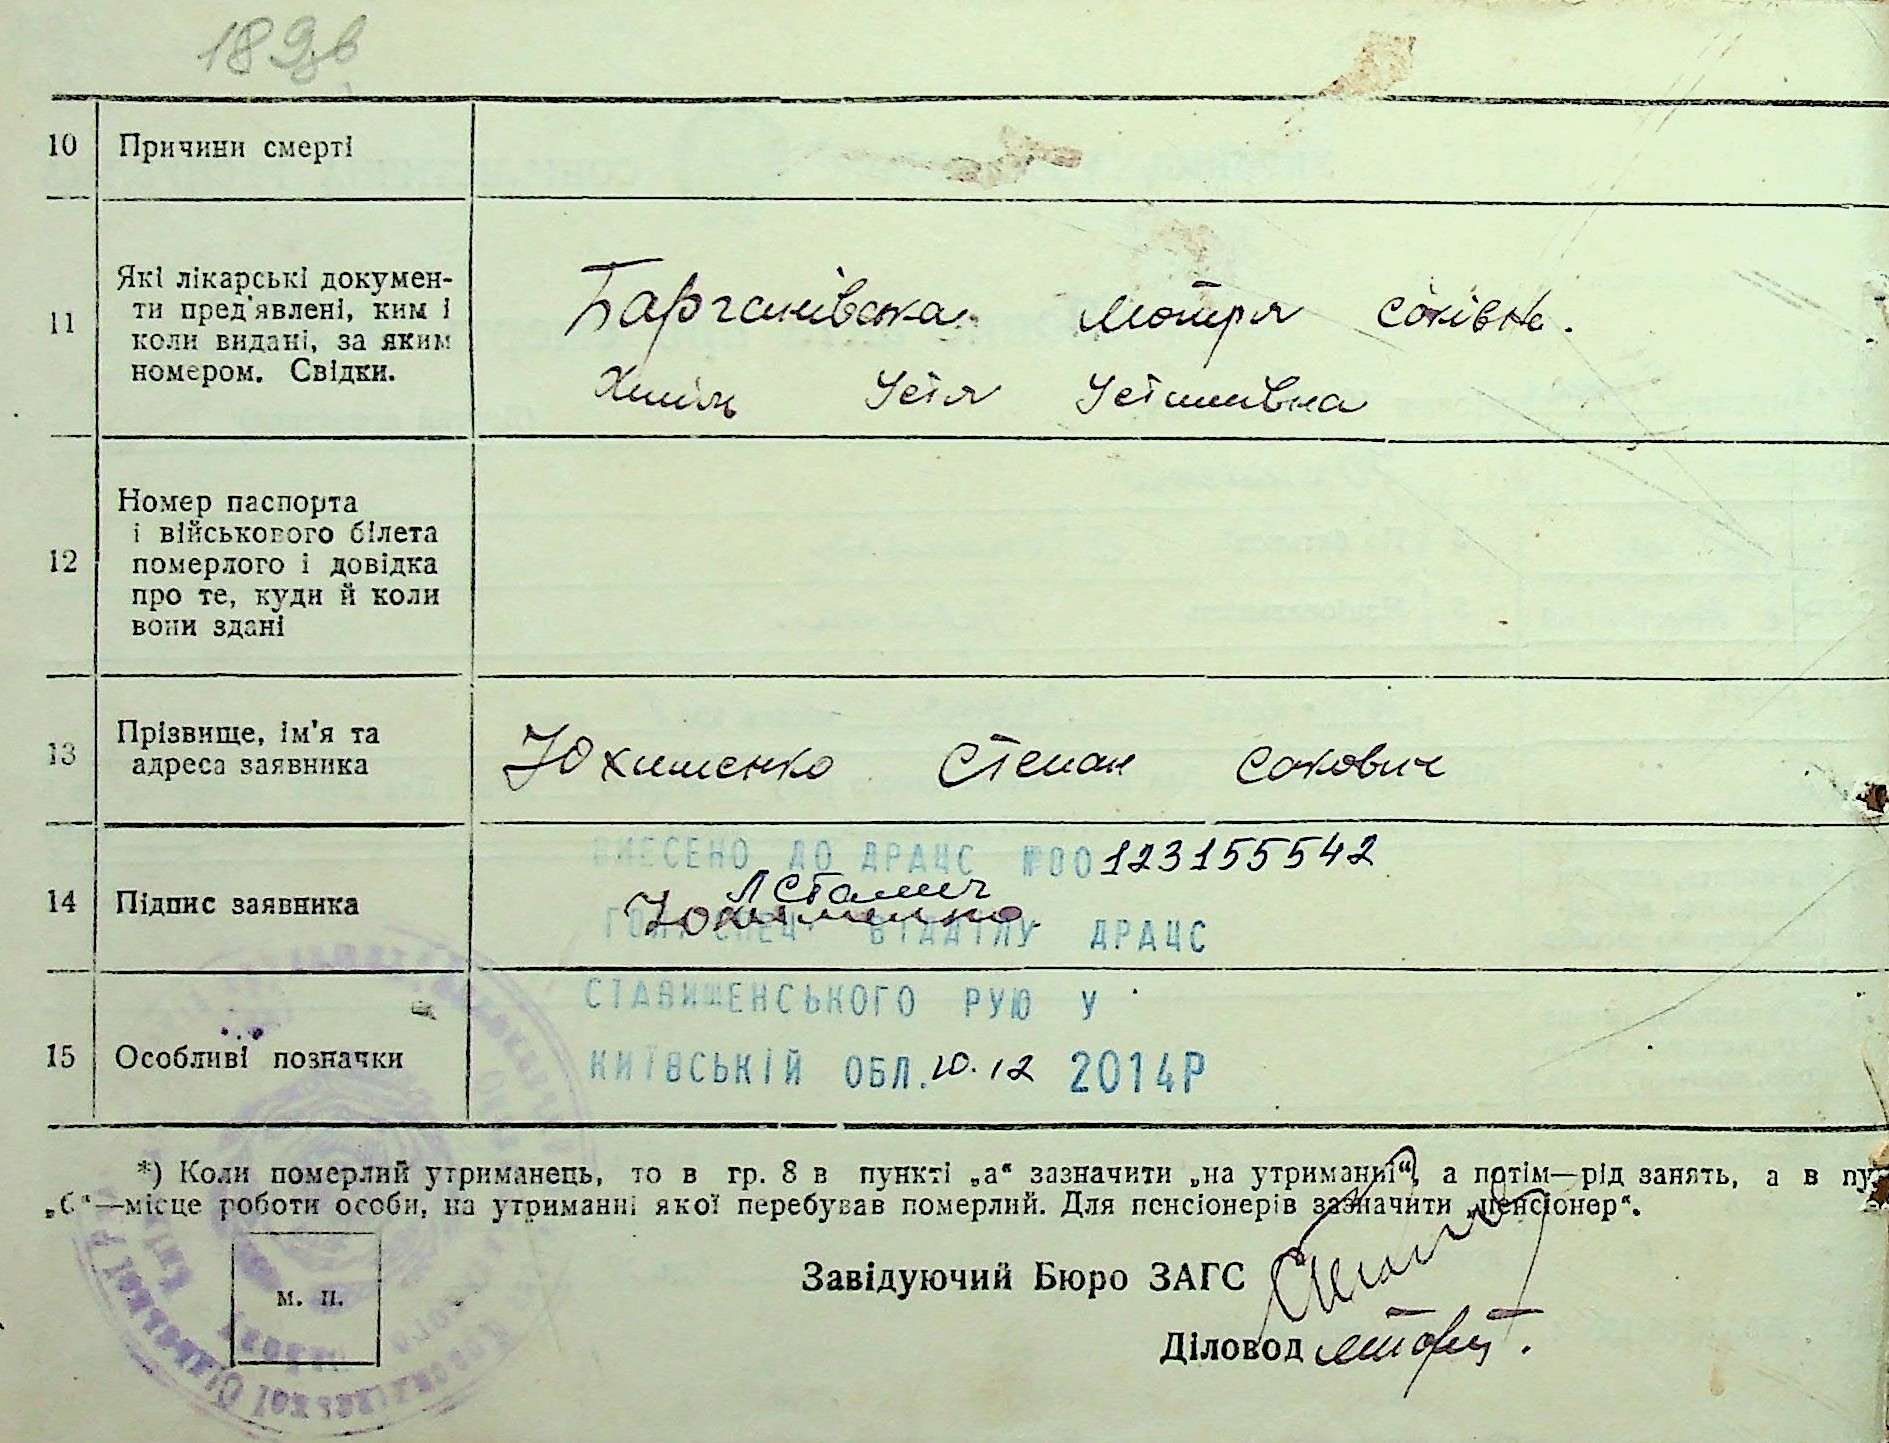 189зв
10 Причини смерті
11 Які лікарські документи пред'явлені, ким і
коли видані, за яким
номером. Свідки.
Барганівська Мотря Соківн.
Хміль Устя Устимівна
12 Номер паспорта
і військового білета
померлого і довідка
про те, куди й коли
вони здані
13 Прізвище, ім'я та
адреса заявника
Юхименко Степан Сокович
14 Підпис заявника
ВНЕСЕНО ДО ДРАЦС №00123155542
Юхименко
ГОЛ. СПЕЦ. ВІДДІЛУ ДРАЦС
СТАВИЩЕНСЬКОГО РУЮ У
15 Особливі позначки
КИЇВСЬКІЙ ОБЛ. 10.12 2014Р
*) Коли померлий утриманець, то в гр. 8 в пункті „а“ зазначити „на утриманні“, а потім—рід занять, а в пу
„б“—місце роботи особи, на утриманні якої перебував померлий. Для пенсіонерів зазначити „пенсіонер“.
м. п.
Завідуючий Бюро ЗАГС
Діловод